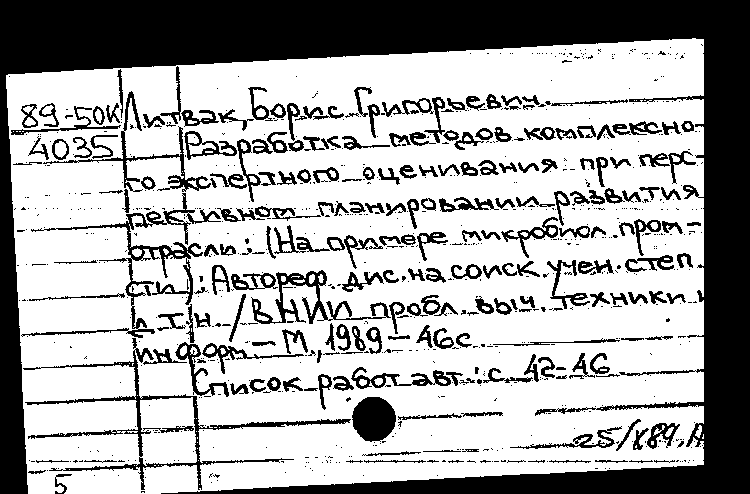 89-50К Литвак, Борис Григорьевич.
4035 Разработка методов комплексно-
го экспертного оценивания при перс-
пективном планировании развития
отрасли: (На примере микробиол. пром-
сти): Автореф. дис. на соиск. учен. степ.
д.т.н. / ВНИИ пробл. выч. техники и
информ. – М., 1989. – 46 с.
Список работ авт.: с. 42-46
25/X89. А
5